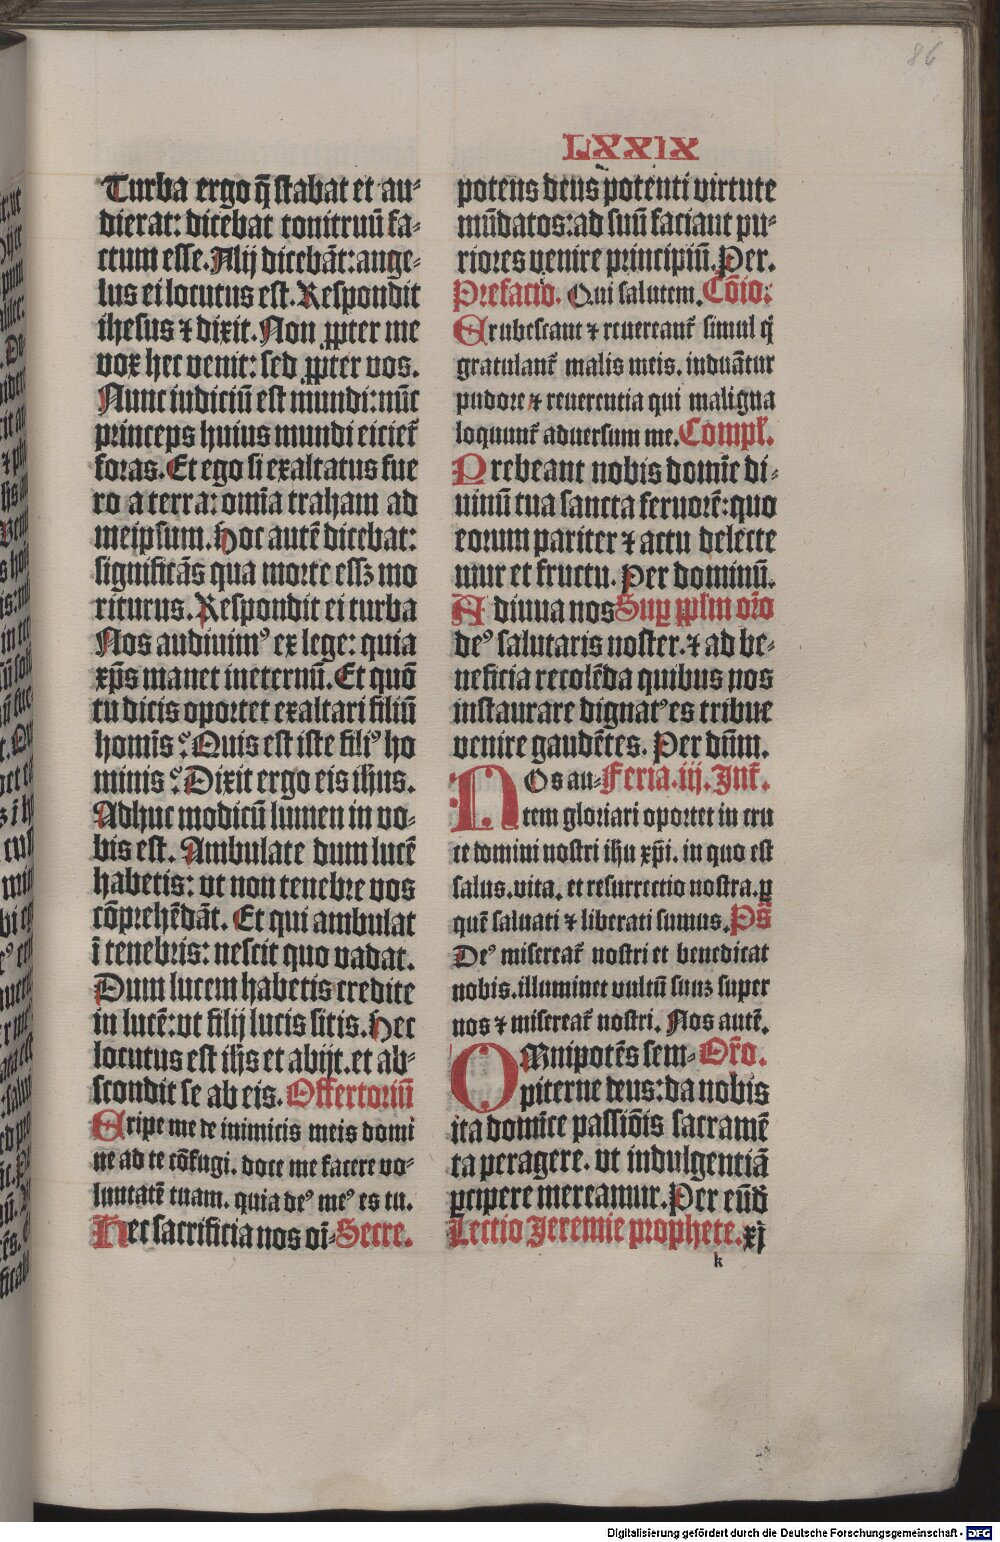 86
LXXIX
Turba ergo q̄ stabat et au-
dierat: dicebat tonitruū fa-
ctum esse. Alij dicebāt: ange-
lus ei locutus est. Respondit
ihesus ⁊ dixit. Non ꝓpter me
vox hec venit: sed ꝓpter vos.
Nunc iudiciū est mundi: nūc
princeps huius mundi eiciet̄
foras. Et ego si exaltatus fue
ro a terra: om̄ia traham ad
meipsum. Hoc autē dicebat:
significās qua morte essꝫ mo
riturus. Respondit ei turba
Nos audiuimꝰ ex lege: quia
xp̄s manet ineternū. Et quō
tu dicis oportet exaltari filiū
homīs? Quis est iste filiꝰ ho
minis? Dixit ergo eis ih̄us.
Adhuc modicū lumen in vo-
bis est. Ambulate dum lucē
habetis: vt non tenebre vos
cōprehēdāt. Et qui ambulat
ī tenebris: nescit quo vadat.
Dum lucem habetis credite
in lucē: vt filij lucis sitis. Hec
locutus est ih̄s et abijt. et ab-
scondit se ab eis. Offertoriū
Eripe me de inimicis meis domi
ne ad te cōfugi. doce me facere vo-
luntatē tuam. quia deꝰ meꝰ es tu.
Hec sacrificia nos oī- Secre.
potens deus potenti virtute
mūdatos: ad suū faciant pu-
riores venire principiū. Per.
Prefacio. Qui salutem. Cōio:
Erubescant ⁊ reuereant̄ simul q̄
gratulant̄ malis meis. induāntur
pudore ⁊ reuerentia qui maligna
loquunt̄ aduersum me. Compl̄.
Prebeant nobis domīe di-
uinū tua sancta feruorē: quo
eorum pariter ⁊ actu delecte
mur et fructu. Per dominū.
Adiuua nos Suꝑ ppl̄m or̄o
deꝰ salutaris noster. ⁊ ad be-
neficia recolēda quibus nos
instaurare dignatꝰ es tribue
venire gaudētes. Per dn̄m.
Nos au- Feria. iij. Int̄.
tem gloriari oportet in cru
ce domini nostri ih̄u xp̄i. in quo est
salus. vita. et resurrectio nostra. ꝑ
quē saluati ⁊ liberati sumus. Ps̄
Deꝰ misereat̄ nostri et benedicat
nobis. illuminet vultū suuꝫ super
nos ⁊ misereat̄ nostri. Nos autē.
Omnipotēs sem- Or̄o.
piterne deus: da nobis
ita domīce passiōis sacramē
ta peragere. vt indulgentiā
ꝑcipere mereamur. Per eūd̄
Lectio Jeremie prophete. xj
k
Digitalisierung gefördert durch die Deutsche Forschungsgemeinschaft - DFG